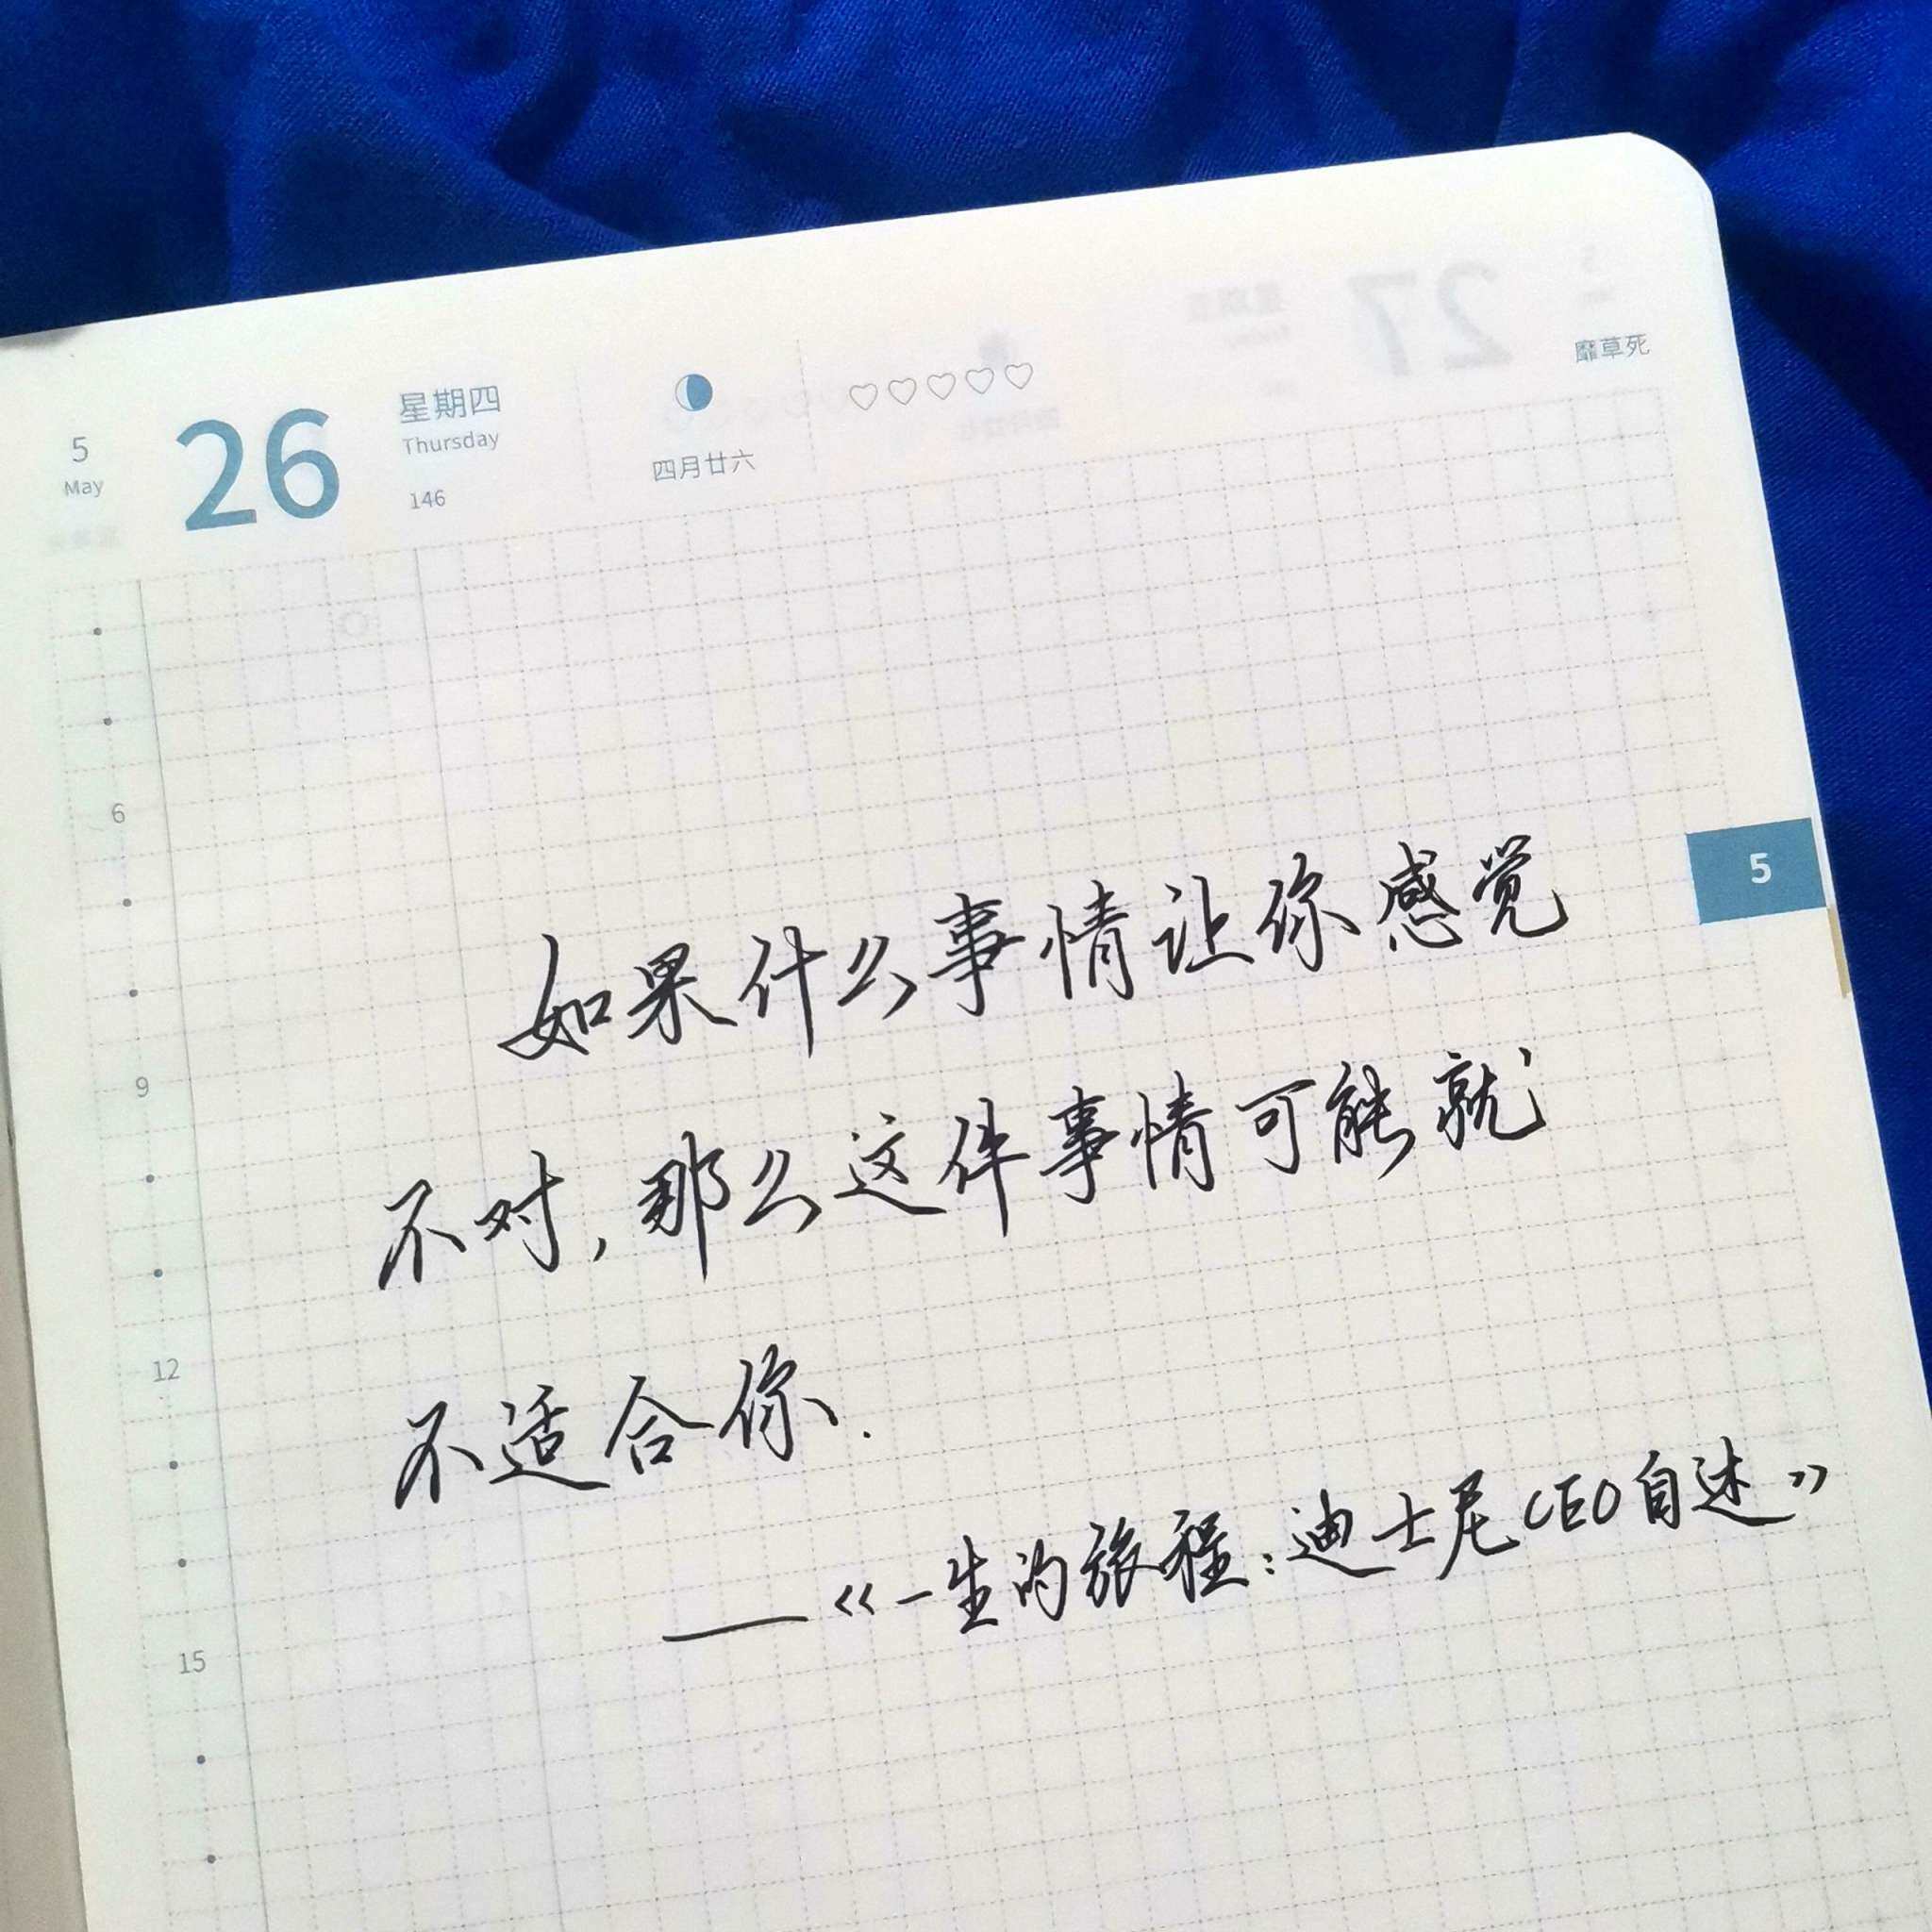 5
May
26
星期四
Thursday
146
四月廿六
靡草死
6
9
12
15
5
如果什么事情让你感觉
不对，那么这件事情可能就
不适合你.
——《一生的旅程：迪士尼CEO自述》